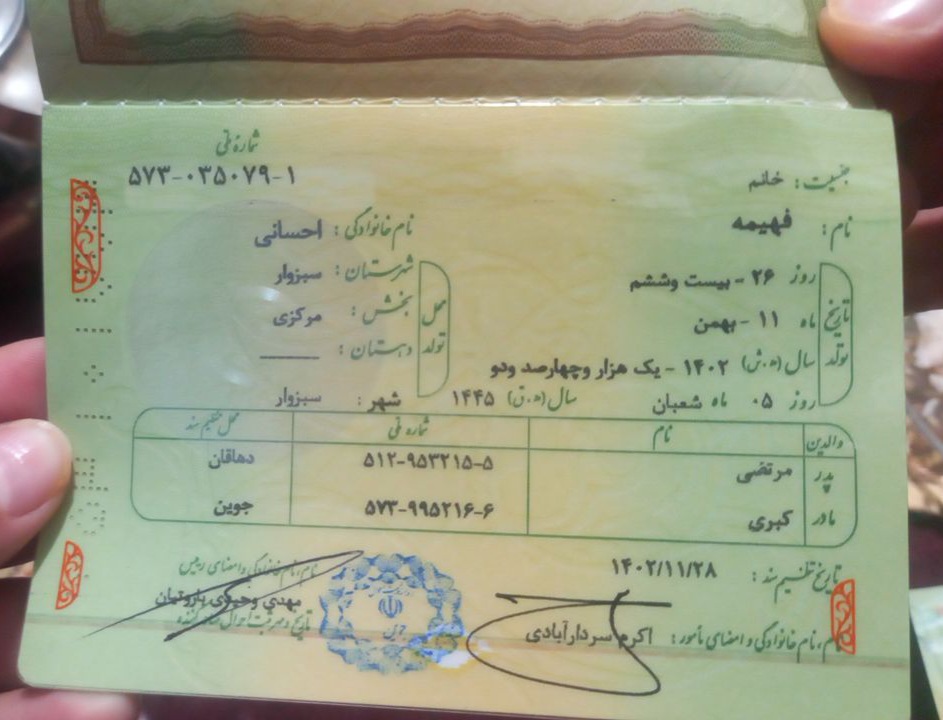 شماره ملی
۵۷۳-۰۳۵۰۷۹-۱
جنسیت : خانم
نام : فهیمه
نام خانوادگی : احسانی
تاریخ تولد
روز ۲۶ - بیست وششم
ماه ۱۱ - بهمن
سال (ه.ش) ۱۴۰۲ - یک هزار وچهارصد ودو
روز ۰۵ ماه شعبان سال (ه.ق) ۱۴۴۵
محل تولد
شهرستان : سبزوار
بخش : مرکزی
دهستان : ــــــ
شهر : سبزوار
والدین نام شماره ملی محل تنظیم سند
پدر مرتضی ۵۱۲-۹۵۳۲۱۵-۵ دهاقان
مادر کبری ۵۷۳-۹۹۵۲۱۶-۶ جوین
تاریخ تنظیم سند : ۱۴۰۲/۱۱/۲۸
نام، نام خانوادگی و امضای مأمور : اکرم سردارآبادی
نام، نام خانوادگی و امضای رییس
مهدی وحیدی باروتیان